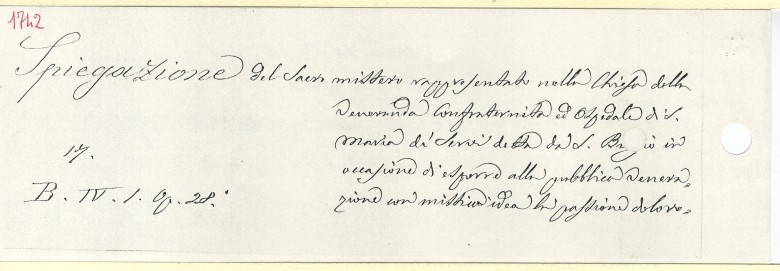 1742
Spiegazione del Sacro mistero rappresentato nella Chiesa della
Veneranda Confraternita ed Ospedale di S.
Maria de' Servi detta da S. Biagio in
occasione di esporre alla pubblica venera,
zione con mistica idea la passione doloro=
17.
B. IV. 1. Op. 28.